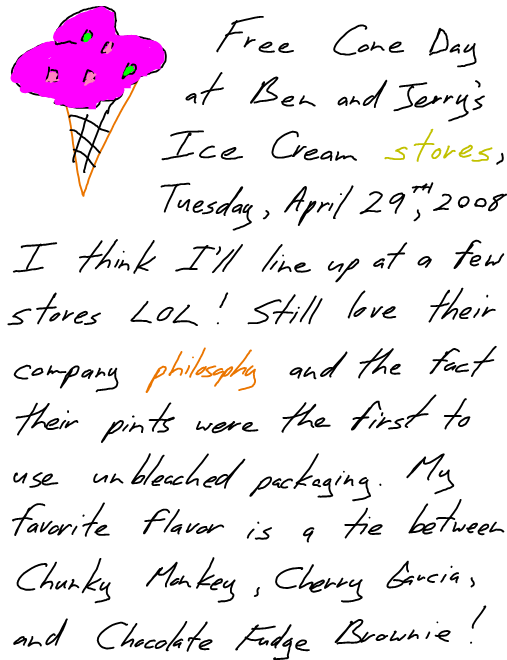 Free Cone Day
at Ben and Jerry's
Ice Cream stores,
Tuesday, April 29TH, 2008
I think I'll line up at a few
stores LOL! Still love their
company philosophy and the fact
their pints were the first to
use unbleached packaging. My
favorite flavor is a tie between
Chunky Monkey, Cherry Garcia,
and Chocolate Fudge Brownie!